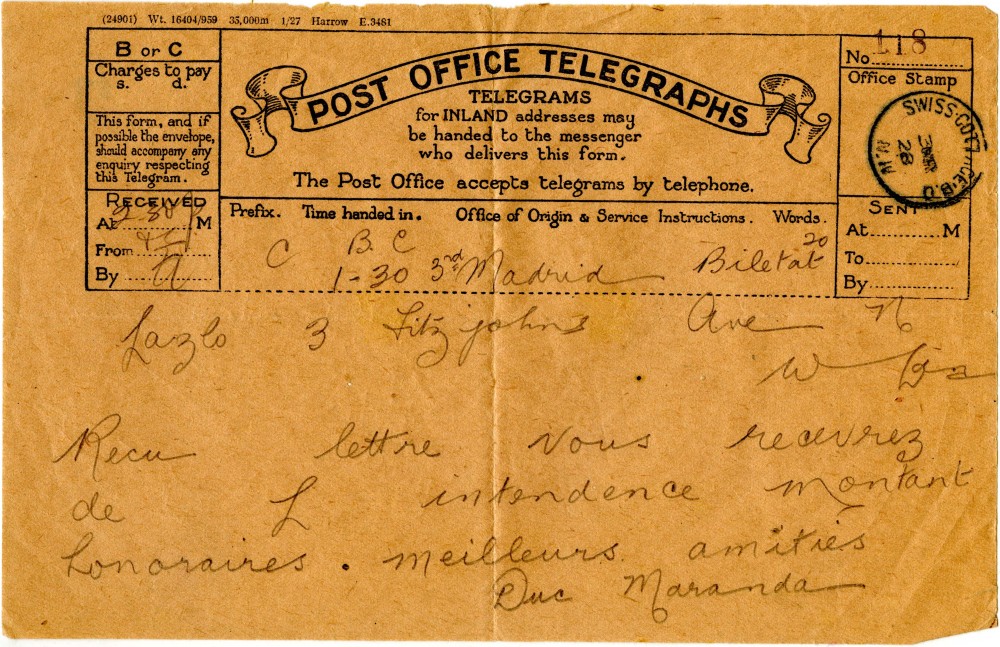 (24901) Wt. 16404/959 35,000m 1/27 Harrow E.3481
B or C
Charges to pay
s. d.
This form, and if
possible the envelope,
should accompany any
enquiry respecting
this Telegram.
RECEIVED
At 2.30 M
From
By
POST OFFICE TELEGRAPHS
TELEGRAMS
for INLAND addresses may
be handed to the messenger
who delivers this form.
The Post Office accepts telegrams by telephone.
No. 118
Office Stamp
SWISS·COTTAGE·B.O
N.W
3 MR
28
SENT
At M
To
By
Prefix. Time handed in. Office of Origin & Service Instructions. Words.
C B C 20
1-30 3rd Madrid Biletat
Lazlo 3 Fitzjohns Ave N
W
Recu lettre vous recevrez
de L intendence montant
honoraires . meilleurs amities
Duc Maranda